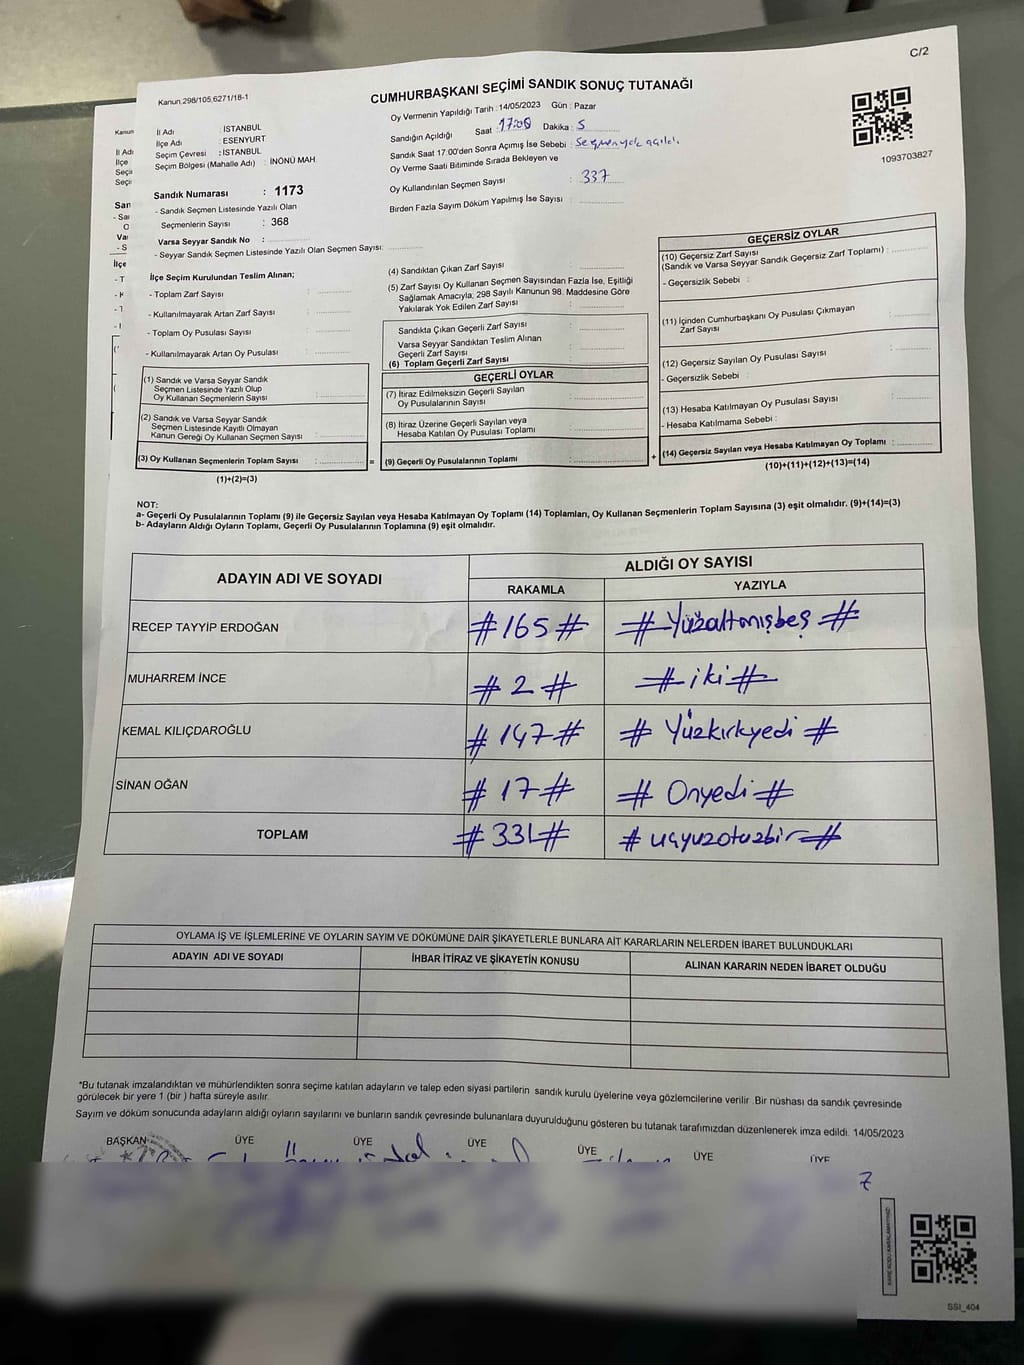 C/2
Kanun 298/105,6271/18-1
CUMHURBAŞKANI SEÇİMİ SANDIK SONUÇ TUTANAĞI
1093703827
İl Adı : İSTANBUL
İlçe Adı : ESENYURT
Seçim Çevresi : İSTANBUL
Seçim Bölgesi (Mahalle Adı) : İNÖNÜ MAH.
Sandık Numarası : 1173
- Sandık Seçmen Listesinde Yazılı Olan
Seçmenlerin Sayısı : 368
Varsa Seyyar Sandık No :
- Seyyar Sandık Seçmen Listesinde Yazılı Olan Seçmen Sayısı:
Oy Vermenin Yapıldığı Tarih : 14/05/2023 Gün : Pazar
Sandığın Açıldığı Saat : Dakika : 5
Sandık Saat 17:00'den Sonra Açımış İse Sebebi :
Oy Verme Saati Bitiminde Sırada Bekleyen ve
Oy Kullandırılan Seçmen Sayısı : 337
Birden Fazla Sayım Döküm Yapılmış İse Sayısı :
İlçe Seçim Kurulundan Teslim Alınan;
- Toplam Zarf Sayısı :
- Kullanılmayarak Artan Zarf Sayısı :
- Toplam Oy Pusulası Sayısı :
- Kullanılmayarak Artan Oy Pusulası :
(1) Sandık ve Varsa Seyyar Sandık
Seçmen Listesinde Yazılı Olup
Oy Kullanan Seçmenlerin Sayısı :
(2) Sandık ve Varsa Seyyar Sandık
Seçmen Listesinde Kayıtlı Olmayan
Kanun Gereği Oy Kullanan Seçmen Sayısı :
(3) Oy Kullanan Seçmenlerin Toplam Sayısı : =
(1)+(2)=(3)
(4) Sandıktan Çıkan Zarf Sayısı :
(5) Zarf Sayısı Oy Kullanan Seçmen Sayısından Fazla İse, Eşitliği
Sağlamak Amacıyla; 298 Sayılı Kanunun 98. Maddesine Göre
Yakılarak Yok Edilen Zarf Sayısı :
Sandıkta Çıkan Geçerli Zarf Sayısı :
Varsa Seyyar Sandıktan Teslim Alınan
Geçerli Zarf Sayısı :
(6) Toplam Geçerli Zarf Sayısı :
GEÇERLİ OYLAR
(7) İtiraz Edilmeksizin Geçerli Sayılan
Oy Pusulalarının Sayısı :
(8) İtiraz Üzerine Geçerli Sayılan veya
Hesaba Katılan Oy Pusulası Toplamı :
(9) Geçerli Oy Pusulalarının Toplamı : +
GEÇERSİZ OYLAR
(10) Geçersiz Zarf Sayısı
(Sandık ve Varsa Seyyar Sandık Geçersiz Zarf Toplamı) :
- Geçersizlik Sebebi :
(11) İçinden Cumhurbaşkanı Oy Pusulası Çıkmayan
Zarf Sayısı :
(12) Geçersiz Sayılan Oy Pusulası Sayısı :
- Geçersizlik Sebebi :
(13) Hesaba Katılmayan Oy Pusulası Sayısı :
- Hesaba Katılmama Sebebi :
(14) Geçersiz Sayılan veya Hesaba Katılmayan Oy Toplamı :
(10)+(11)+(12)+(13)=(14)
NOT:
a- Geçerli Oy Pusulalarının Toplamı (9) ile Geçersiz Sayılan veya Hesaba Katılmayan Oy Toplamı (14) Toplamları, Oy Kullanan Seçmenlerin Toplam Sayısına (3) eşit olmalıdır. (9)+(14)=(3)
b- Adayların Aldığı Oyların Toplamı, Geçerli Oy Pusulalarının Toplamına (9) eşit olmalıdır.
ADAYIN ADI VE SOYADI ALDIĞI OY SAYISI
RAKAMLA YAZIYLA
RECEP TAYYİP ERDOĞAN #165# #Yüzaltmışbeş#
MUHARREM İNCE #2# #iki#
KEMAL KILIÇDAROĞLU #147# #Yüzkırkyedi#
SİNAN OĞAN #17# #Onyedi#
TOPLAM #331# #üçyüzotuzbir#
OYLAMA İŞ VE İŞLEMLERİNE VE OYLARIN SAYIM VE DÖKÜMÜNE DAİR ŞİKAYETLERLE BUNLARA AİT KARARLARIN NELERDEN İBARET BULUNDUKLARI
ADAYIN ADI VE SOYADI İHBAR İTİRAZ VE ŞİKAYETİN KONUSU ALINAN KARARIN NEDEN İBARET OLDUĞU
*Bu tutanak imzalandıktan ve mühürlendikten sonra seçime katılan adayların ve talep eden siyasi partilerin sandık kurulu üyelerine veya gözlemcilerine verilir .Bir nüshası da sandık çevresinde
görülecek bir yere 1 (bir ) hafta süreyle asılır.
Sayım ve döküm sonucunda adayların aldığı oyların sayılarını ve bunların sandık çevresinde bulunanlara duyurulduğunu gösteren bu tutanak tarafımızdan düzenlenerek imza edildi. 14/05/2023
BAŞKAN ÜYE ÜYE ÜYE ÜYE ÜYE ÜYE
SSI_404